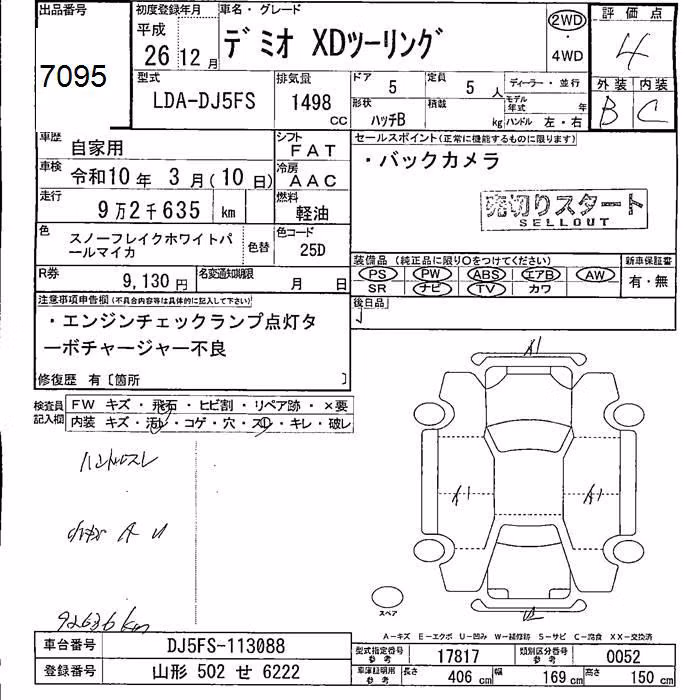 出品番号
7095
初度登録年月
平成
26 12 月
車名・グレード
デミオ XDツーリング
2WD
・
4WD
評価点
4
外装 内装
B C
型式
LDA-DJ5FS
排気量
1498
CC
ドア
5
定員
5 人
ディーラー・並行
形状
ハッチB
積載
kg
モデル年式 年
ハンドル 左・右
車歴
自家用
シフト
FAT
車検
令和10 年 3 月 ( 10 日)
冷房
AAC
走行
9 万 2 千 635 km
燃料
軽油
色
スノーフレイクホワイトパ
ールマイカ
色替
色コード
25D
R券
9,130 円
名変通知期限
月 日
セールスポイント(正常に機能するものに限ります)
・バックカメラ
売切りスタート
SELLOUT
装備品 (純正品に限り〇をつけてください)
PS PW ABS エアB AW
SR ナビ TV カワ
新車保証書
有・無
後日品
注意事項申告欄 (不具合内容等は具体的に記入して下さい)
・エンジンチェックランプ点灯タ
ーボチャージャー不良
修復歴 有〔箇所 〕
検査員
記入欄
FW キズ・飛石・ヒビ割・リペア跡・×要
内装 キズ・汚れ・コゲ・穴・スレ・キレ・破レ
ハンドルスレ
A U
92636 km
A1
A1
A1
U2
スペア
A-キズ E-エクボ U-凹み W-補修跡 S-サビ C-腐食 XX-交換済
車台番号
DJ5FS-113088
登録番号
山形 502 せ 6222
型式指定番号
参考
17817
類別区分番号
参考
0052
車庫証明用
参考
長さ
406 cm
幅
169 cm
高さ
150 cm